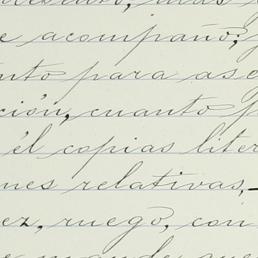 e acompaño;
nto para as
ción, cuanto
él copias liter
nes relativas,
ez, ruego, con